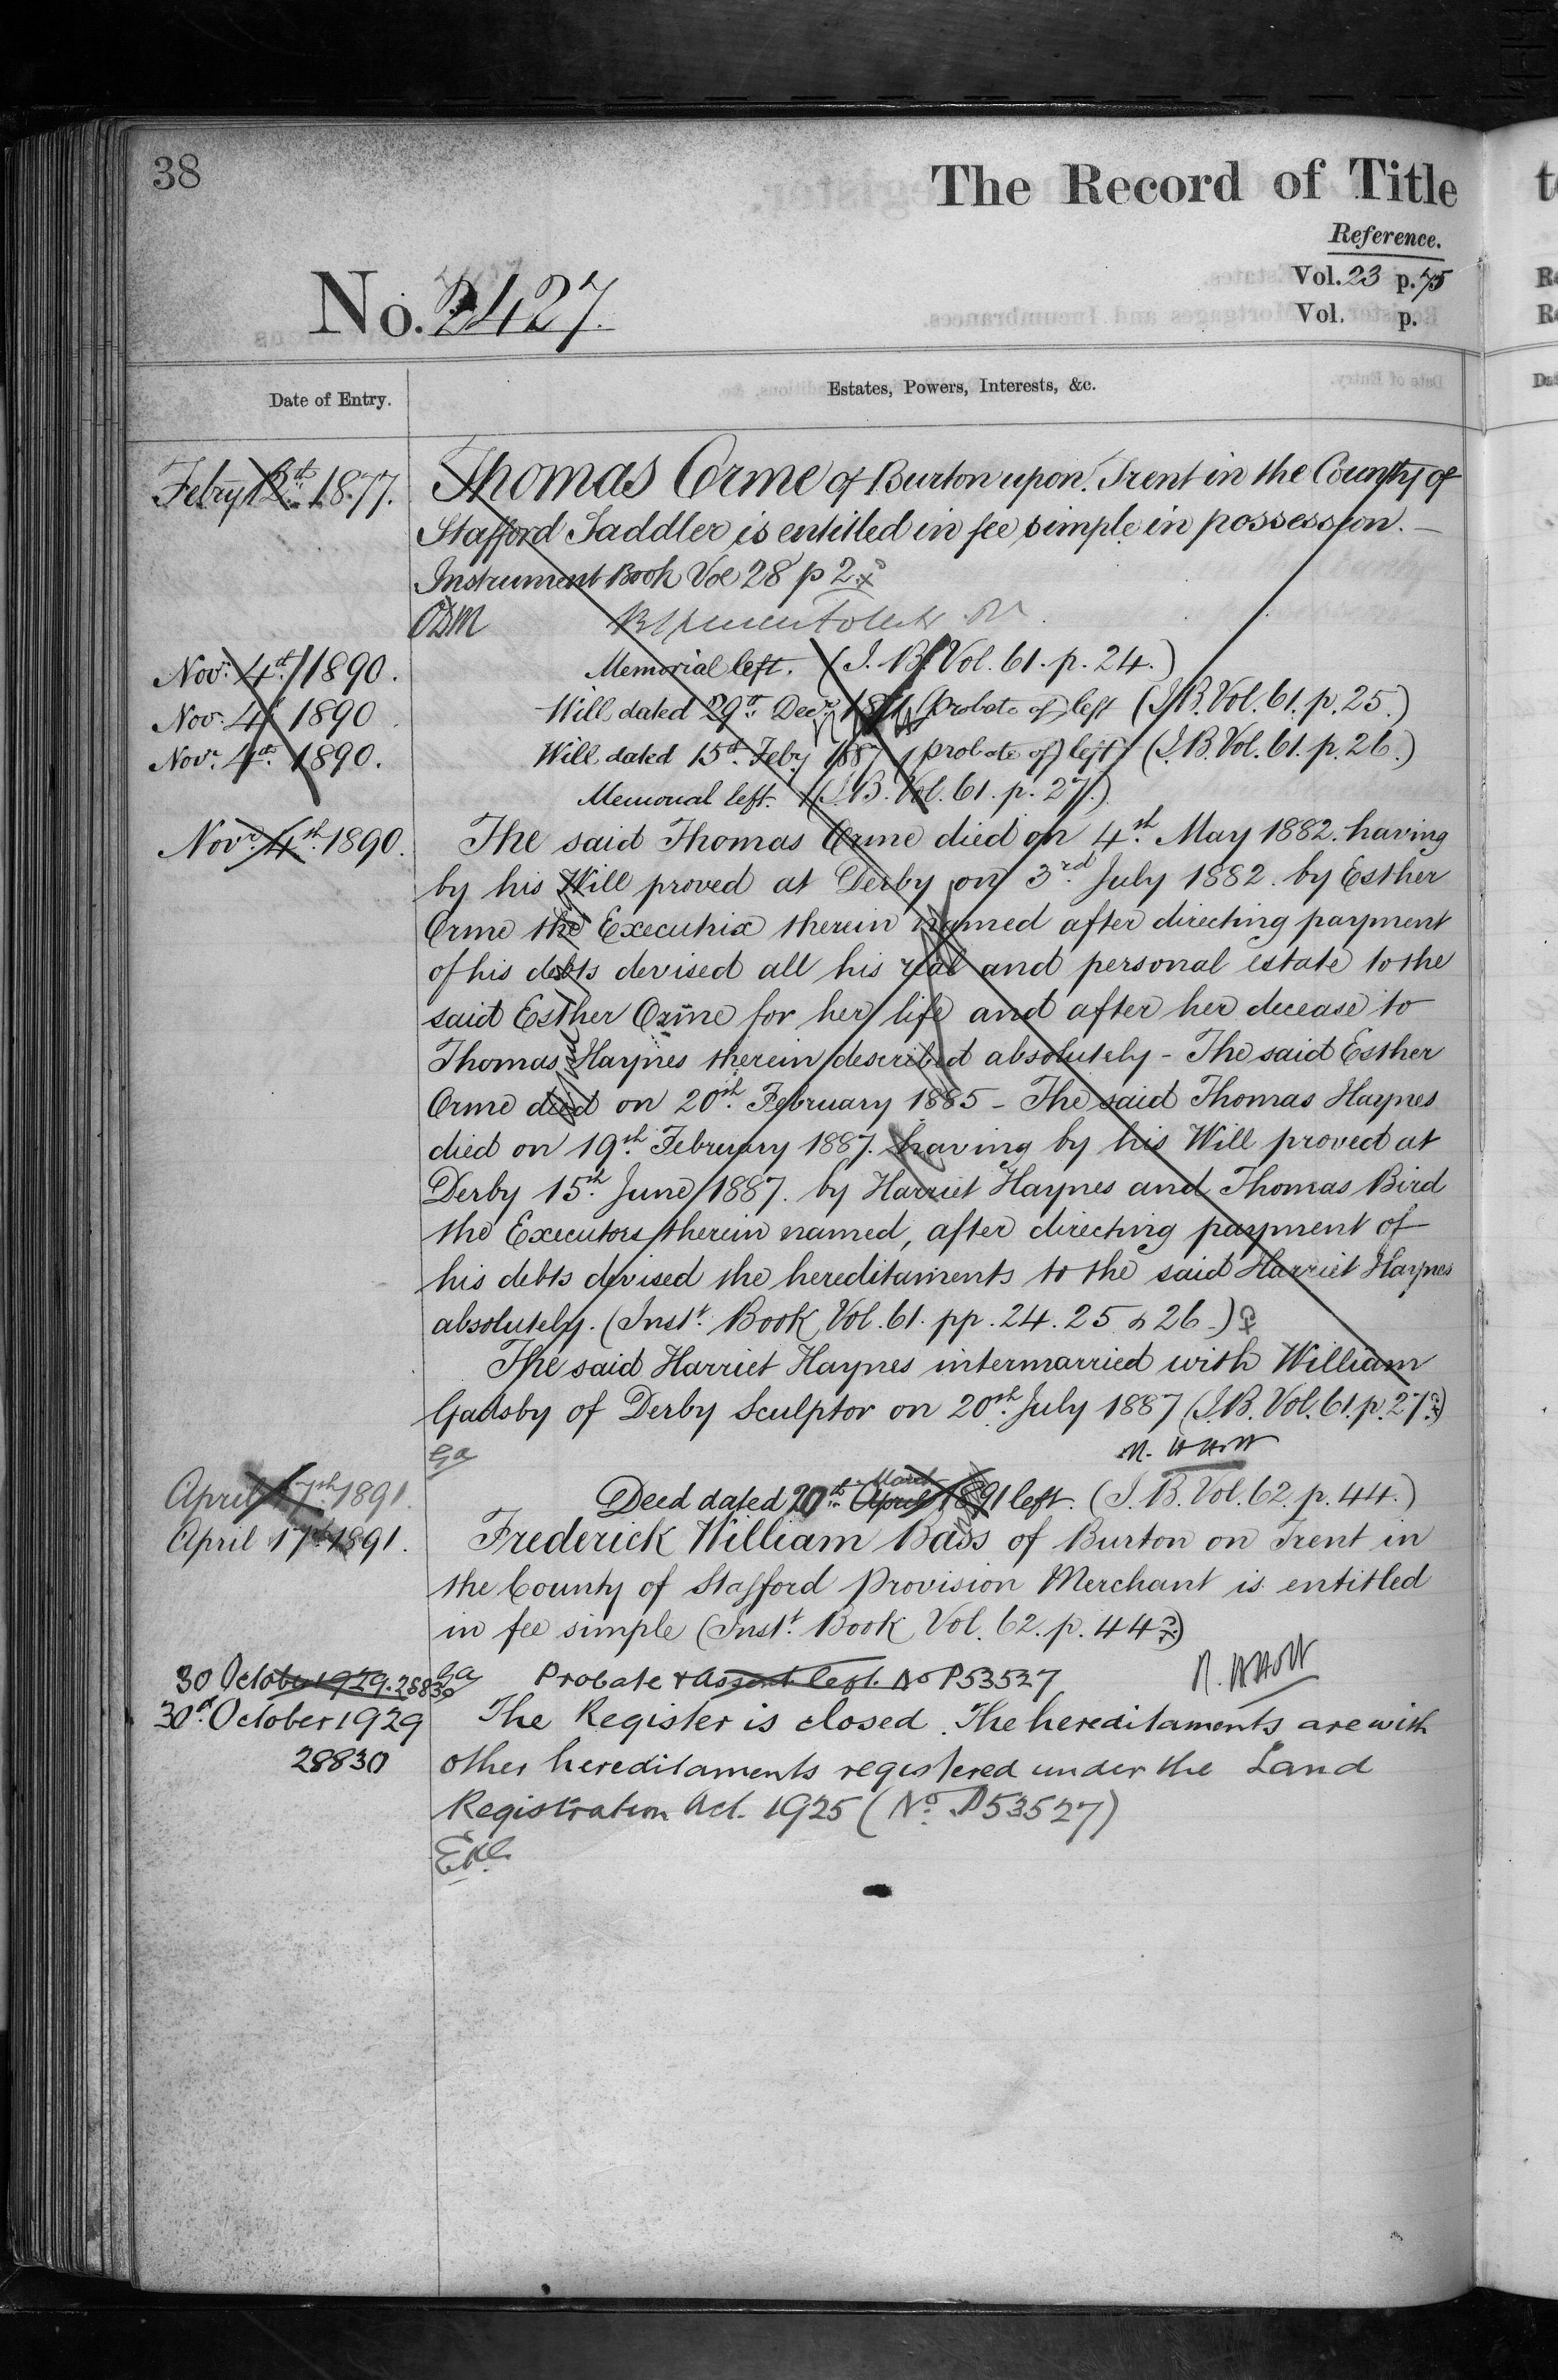 38
The Record of Title
Reference.
Vol. 23 p. 75
Vol. p.
No. 2427.
Date of Entry.
Estates, Powers, Interests, &c.
Febry 12th 1877.
Thomas Orme of Burton upon Trent in the County of
Stafford Saddler is entitled in fee simple in possession. —
Instrument Book Vol 28 p 2
Nov: 4th 1890.
Memorial left. (I. B. Vol. 61. p. 24.)
Nov: 4th 1890
Will dated 29th Decr. 1871 (probate of) left (I.B. Vol. 61. p. 25.)
Novr. 4th 1890.
Will dated 15th Feby 1887 (probate of) left (I.B. Vol. 61. p. 26.)
Memorial left. (I.B. Vol. 61. p. 27.)
Novr. 4th 1890.
The said Thomas Orme died on 4th May 1882. having
by his Will proved at Derby on 3rd July 1882. by Esther
Orme the Executrix therein named after directing payment
of his debts devised all his real and personal estate to the
said Esther Orme for her life and after her decease to
Thomas Haynes therein described absolutely - The said Esther
Orme died on 20th February 1885 - The said Thomas Haynes
died on 19th February 1887. having by his Will proved at
Derby 15th June 1887. by Harriet Haynes and Thomas Bird
the Executors therein named, after directing payment of
his debts devised the hereditaments to the said Harriet Haynes
absolutely. (Inst. Book Vol. 61. pp. 24. 25 & 26.)
The said Harriet Haynes intermarried with William
Gadsby of Derby Sculptor on 20th July 1887 (I.B. Vol. 61. p. 27.)
Ga
April 17th 1891.
March
Deed dated 20th April 1891 left. (I.B. Vol. 62. p. 44.)
April 17th 1891.
Frederick William Bass of Burton on Trent in
the County of Stafford Provision Merchant is entitled
in fee simple (Inst. Book Vol. 62. p. 44)
30 October 1929. 28830
Ga
Probate & Assent left. No P53527
30th October 1929
28830
The Register is closed. The hereditaments are with
other hereditaments registered under the Land
Registration Act. 1925 (No. P53527)